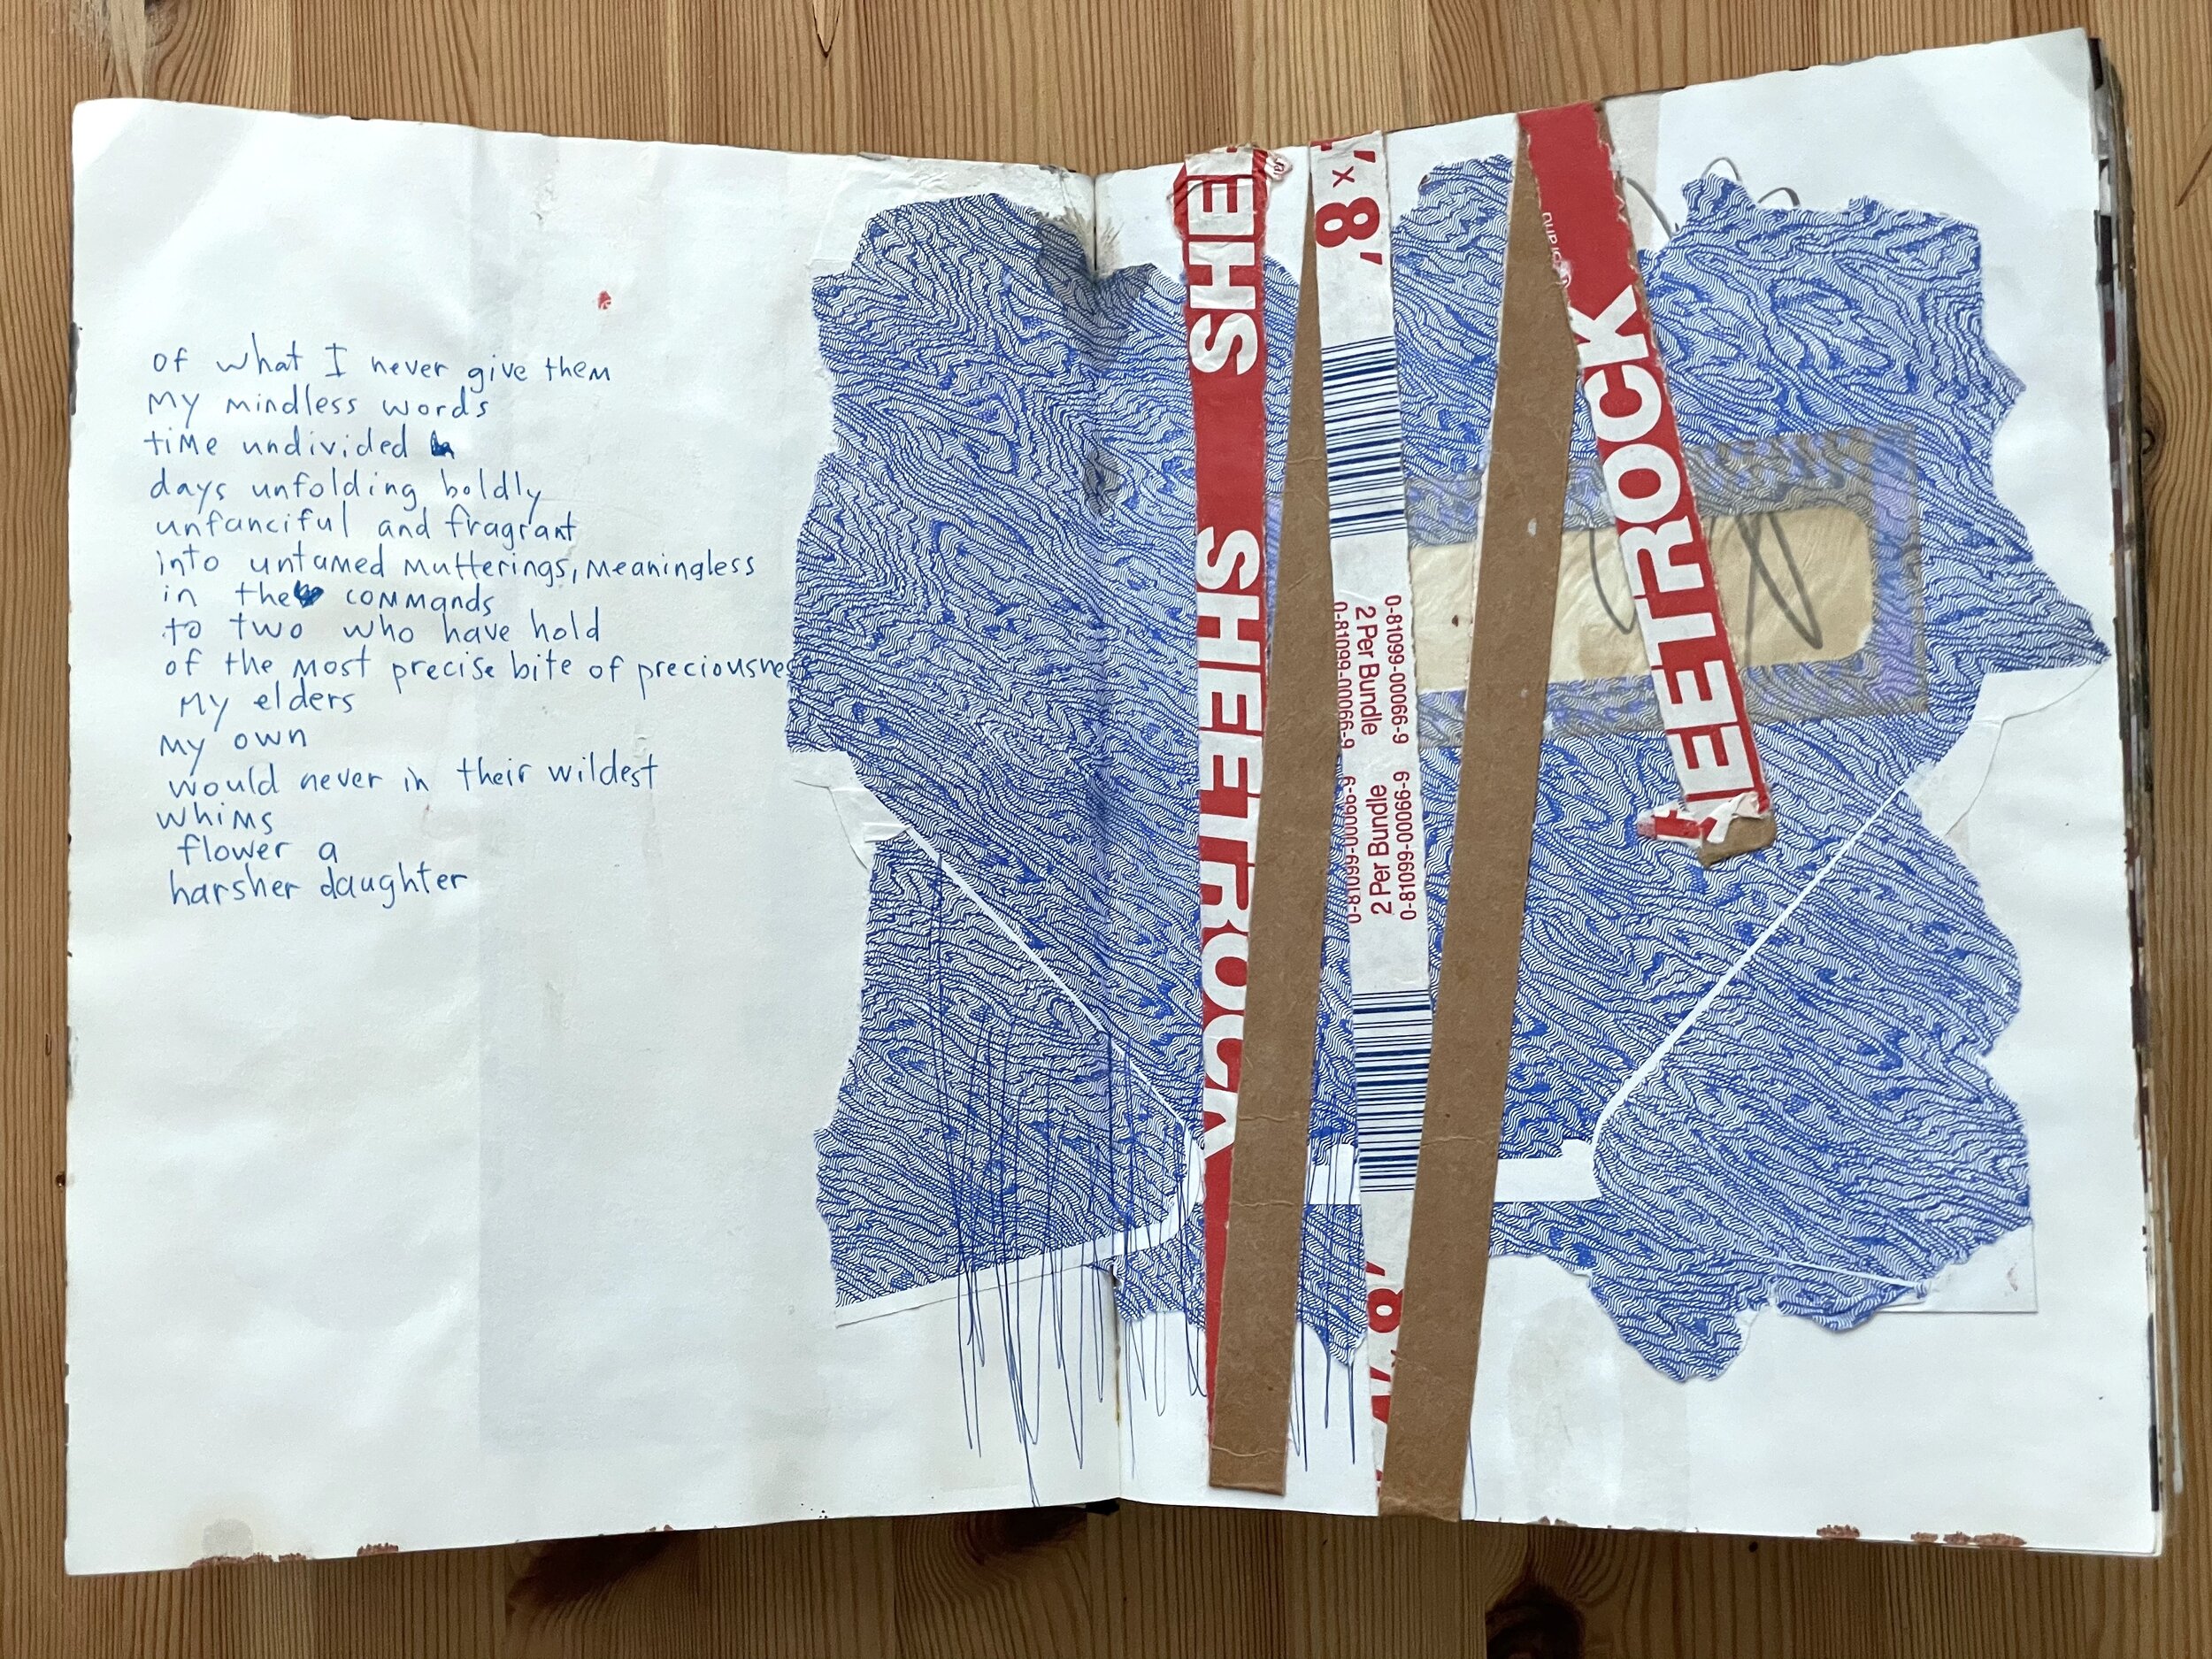 of what I never give them
my mindless words
time undivided
days unfolding boldly
unfanciful and fragrant
into untamed mutterings, meaningless
in the commands
to two who have hold
of the most precise bite of preciousness
My elders
My own
would never in their wildest
whims
flower a
harsher daughter
SHE
SHEETROCK
x 8'
0-81099-00066-9
2 Per Bundle
0-81099-00066-9
0-81099-00066-9
2 Per Bundle
0-81099-00066-9
x 8'
EETROCK